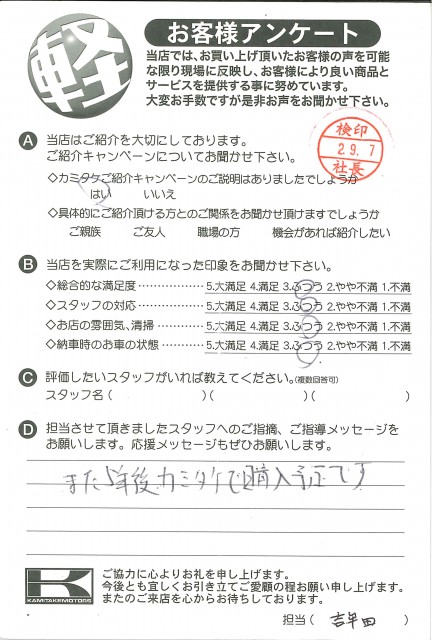 軽
お客様アンケート
当店では、お買い上げ頂いたお客様の声を可能
な限り現場に反映し、お客様により良い商品と
サービスを提供する事に努めています。
大変お手数ですが是非お声をお聞かせ下さい。
検印
29.7
社長
A 当店はご紹介を大切にしております。
ご紹介キャンペーンについてお聞かせ下さい。
◇カミタケご紹介キャンペーンのご説明はありましたでしょうか
はい いいえ
◇具体的にご紹介頂ける方とのご関係をお聞かせ頂けますでしょうか
ご親族 ご友人 職場の方 機会があれば紹介したい
B 当店を実際にご利用になった印象をお聞かせ下さい。
◇総合的な満足度……………… 5.大満足 4.満足 3.ふつう 2.やや不満 1.不満
◇スタッフの対応……………… 5.大満足 4.満足 3.ふつう 2.やや不満 1.不満
◇お店の雰囲気、清掃………… 5.大満足 4.満足 3.ふつう 2.やや不満 1.不満
◇納車時のお車の状態………… 5.大満足 4.満足 3.ふつう 2.やや不満 1.不満
C 評価したいスタッフがいれば教えてください。(複数回答可)
スタッフ名( )( )( )
D 担当させて頂きましたスタッフへのご指摘、ご指導メッセージを
お願いします。応援メッセージもぜひお願いします。
また5年後カミタケで購入予定です
K
KAMITAKEMOTORS
ご協力に心よりお礼を申し上げます。
今後とも宜しくお引き立てご愛顧の程お願い申し上げます。
またのご来店を心からお待ちしております。
担当( 吉早田 )